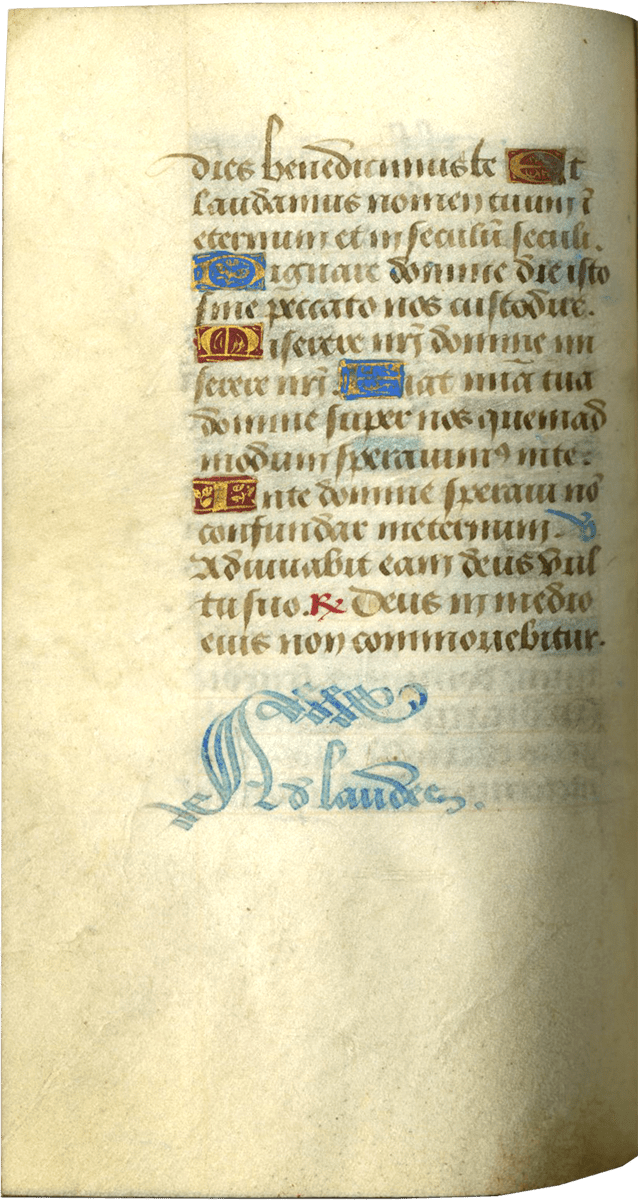 dies benedicimus te Et
laudamus nomen tuum ī
eternum et in seculū seculi.
Dignare domine die isto
sine peccato nos custodire.
Miserere nrī domine mi
serere nrī. Fiat miā tua
domine super nos quemad
modum sperauimꝰ in te.
In te domine speraui nō
confundar in eternum. ℣
Adiuuabit eam deus vul
tu suo. ℞ Deus in medio
eius non commouebitur.
Ad laudes.